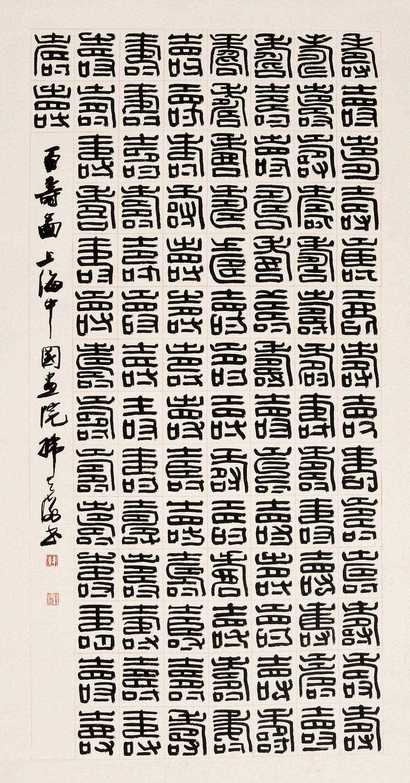 壽壽壽壽壽壽壽壽壽壽壽壽壽壽
壽壽壽壽壽壽壽壽壽壽壽壽壽壽
壽壽壽壽壽壽壽壽壽壽壽壽壽壽
壽壽壽壽壽壽壽壽壽壽壽壽壽壽
壽壽壽壽壽壽壽壽壽壽壽壽壽壽
壽壽壽壽壽壽壽壽壽壽壽壽壽壽
壽壽壽壽壽壽壽壽壽壽壽壽壽壽
壽壽
百壽圖上海中國畫院